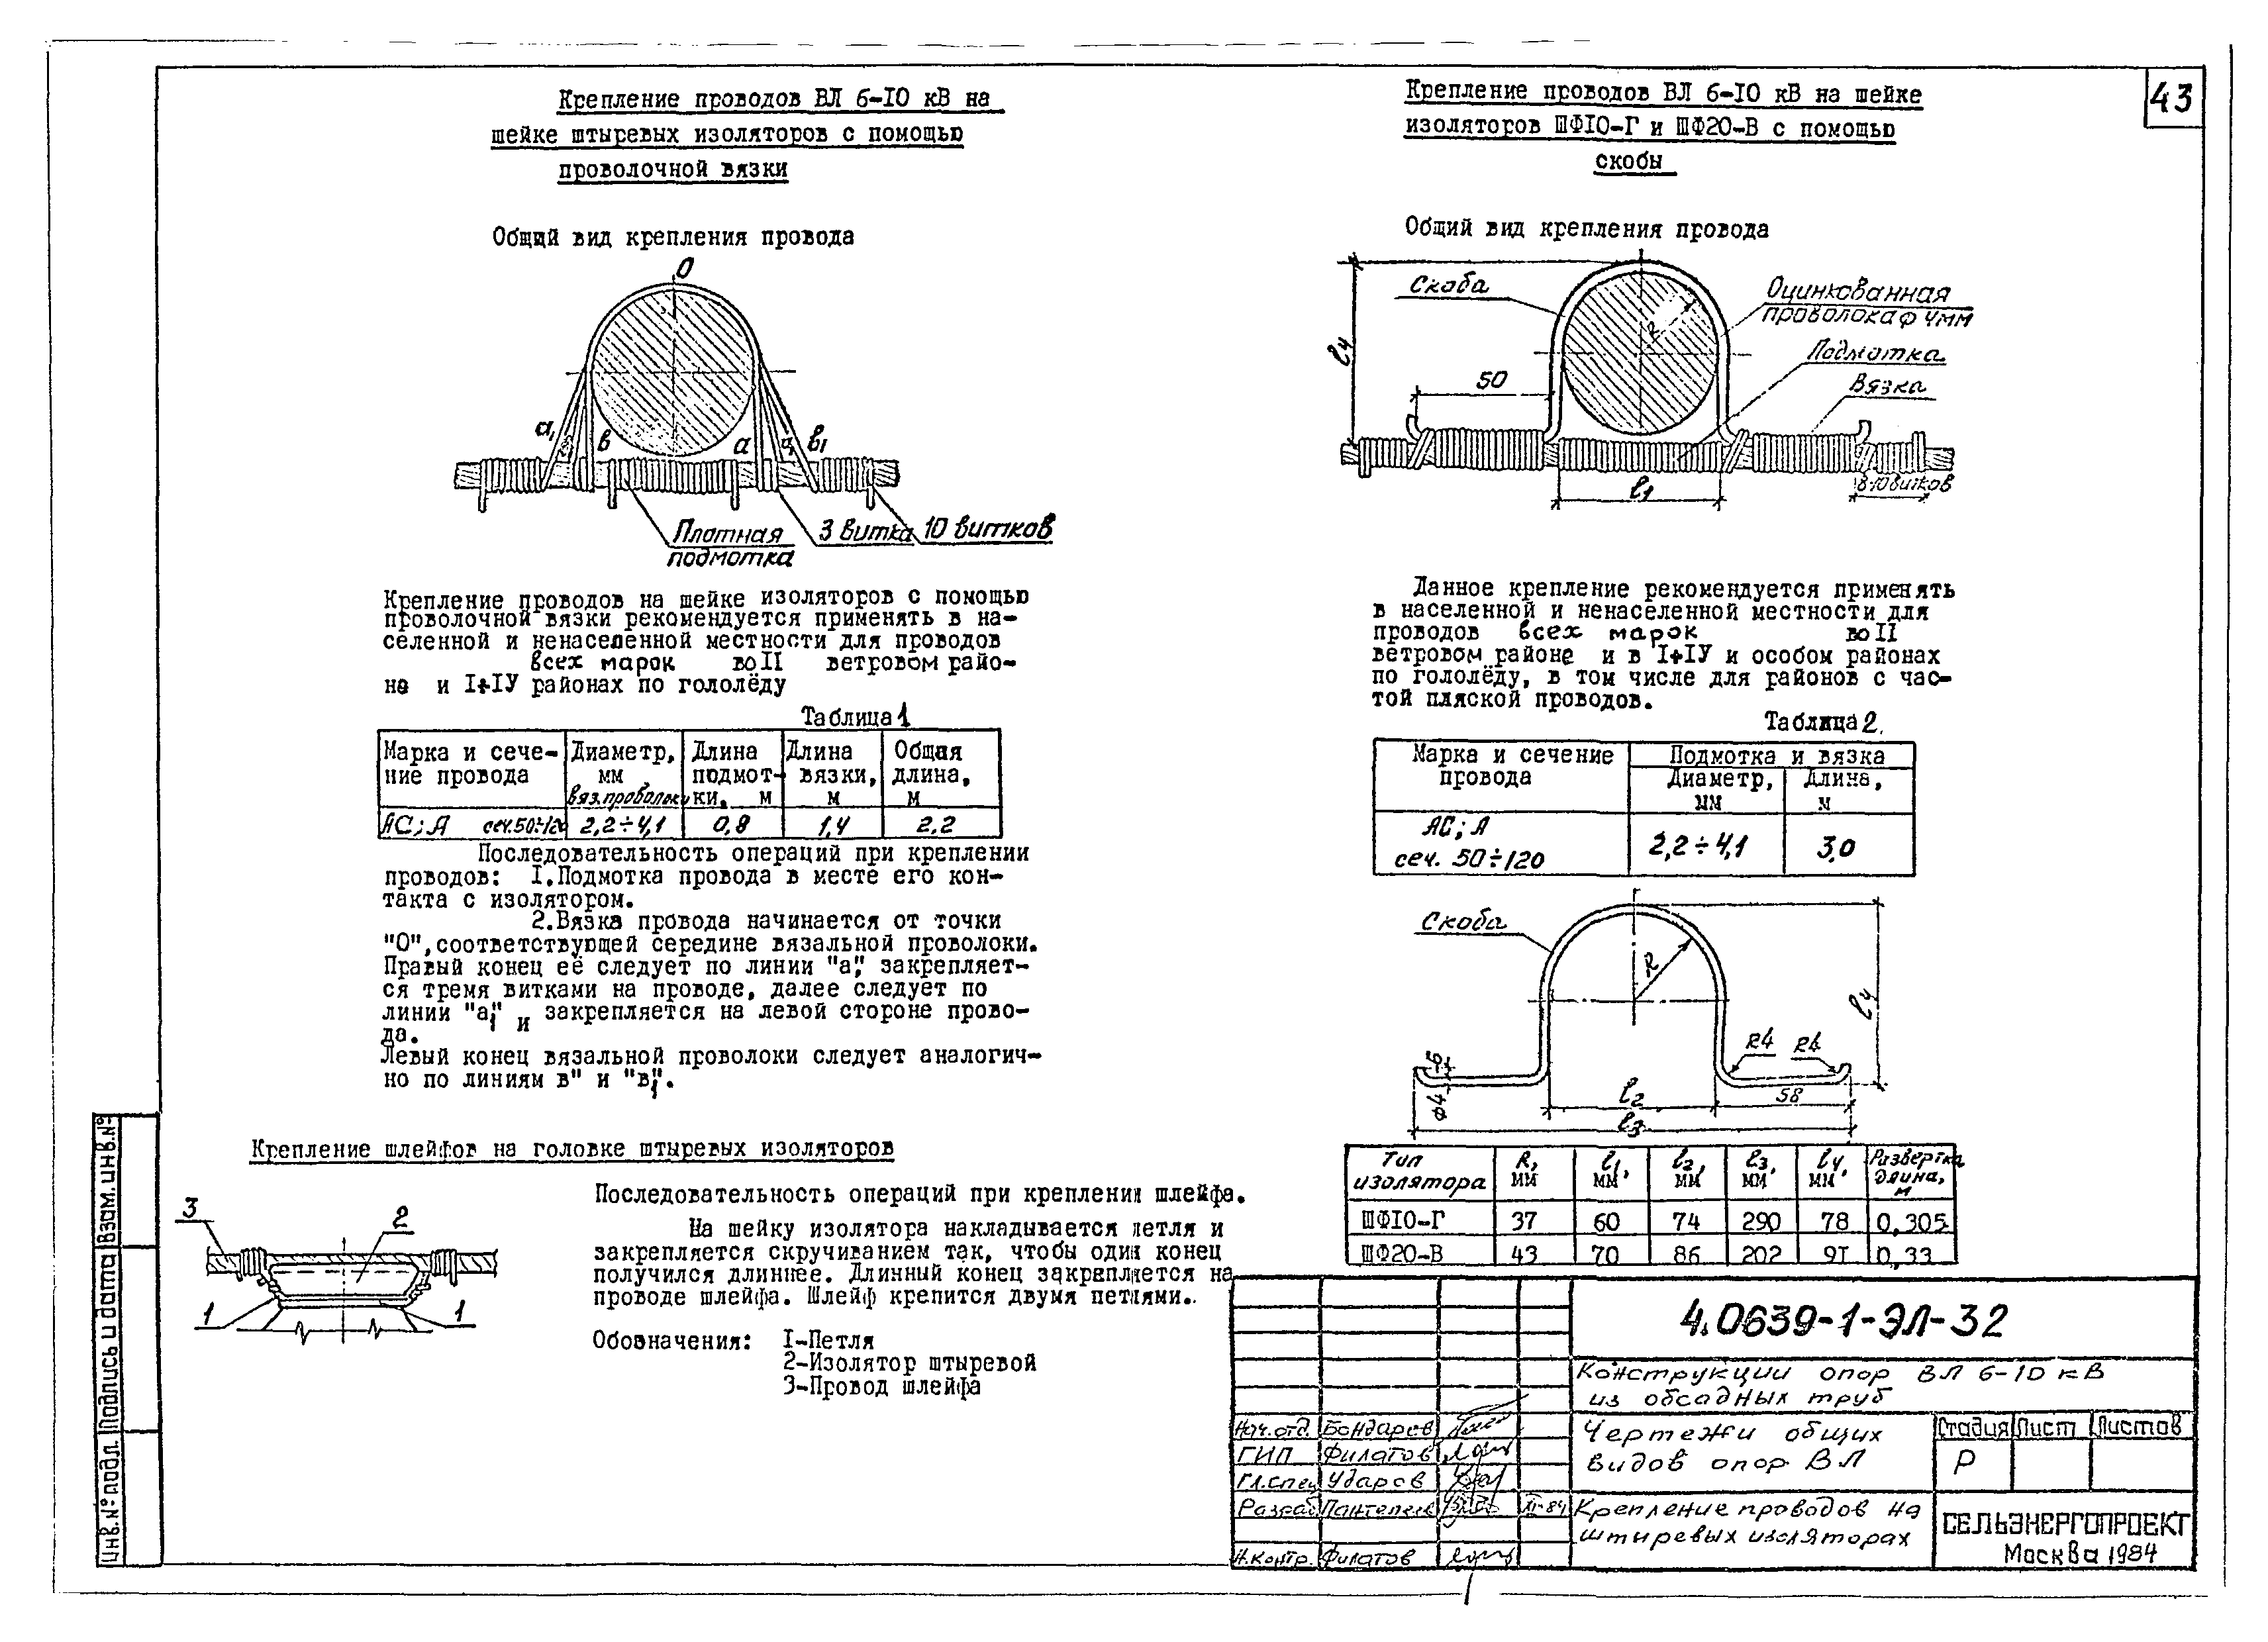 43
Крепление проводов ВЛ 6-10 кВ на
шейке штыревых изоляторов с помощью
проволочной вязки
Общий вид крепления провода
О
а₁
в
а
в₁
Плотная
подмотка
3 витка
10 витков
Крепление проводов на шейке изоляторов с помощью
проволочной вязки рекомендуется применять в на-
селенной и ненаселенной местности для проводов
всех марок во II ветровом райо-
не и I÷IУ районах по гололёду
Таблица 1
Марка и сече-
ние провода
Диаметр,
мм
вяз.проволоки
Длина
подмот-
ки, м
Длина
вязки,
м
Общая
длина,
м
АС; А сеч.50÷120 2,2÷4,1 0,8 1,4 2,2
Последовательность операций при креплении
проводов: 1.Подмотка провода в месте его кон-
такта с изолятором.
2.Вязка провода начинается от точки
"О",соответствующей середине вязальной проволоки.
Правый конец её следует по линии "а", закрепляет-
ся тремя витками на проводе, далее следует по
линии "а₁" и закрепляется на левой стороне прово-
да.
Левый конец вязальной проволоки следует аналогич-
но по линиям в" и "в₁".
Крепление шлейфов на головке штыревых изоляторов
3
2
1
1
Последовательность операций при креплении шлейфа.
На шейку изолятора накладывается петля и
закрепляется скручиванием так, чтобы один конец
получился длиннее. Длинный конец закрепляется на
проводе шлейфа. Шлейф крепится двумя петлями.
Обозначения: 1-Петля
2-Изолятор штыревой
3-Провод шлейфа
Крепление проводов ВЛ 6-10 кВ на шейке
изоляторов ШФ10-Г и ШФ20-В с помощью
скобы
Общий вид крепления провода
Скоба
Оцинкованная
проволока ф 4мм
Подмотка
Вязка
R
ℓ4
50
ℓ1
8-10 витков
Данное крепление рекомендуется применять
в населенной и ненаселенной местности для
проводов всех марок во II
ветровом районе и в I÷IУ и особом районах
по гололёду, в том числе для районов с час-
той пляской проводов.
Таблица 2.
Марка и сечение
провода
Подмотка и вязка
Диаметр,
мм
Длина,
м
АС; А
сеч. 50÷120
2,2÷4,1 3,0
Скоба
R
ℓ4
R4 R4
ф4
ℓ2
58
ℓ3
Тип
изолятора
R,
мм
ℓ1,
мм
ℓ2,
мм
ℓ3,
мм
ℓ4,
мм
Развертка
длина,
м
ШФ10-Г 37 60 74 290 78 0,305
ШФ20-В 43 70 86 202 91 0,33
4.0639-1-ЭЛ-32
Конструкции опор ВЛ 6-10 кВ
из обсадных труб
Чертежи общих
видов опор ВЛ
Стадия Лист Листов
Р
Крепление проводов на
штыревых изоляторах
СЕЛЬЭНЕРГОПРОЕКТ
Москва 1984
Нач.отд. Бондарев
ГИП Филатов
Гл.спец Ударов
Разраб Пантелеев
Н.контр. Филатов
Инв.№ подл. Подпись и дата Взам.инв.№